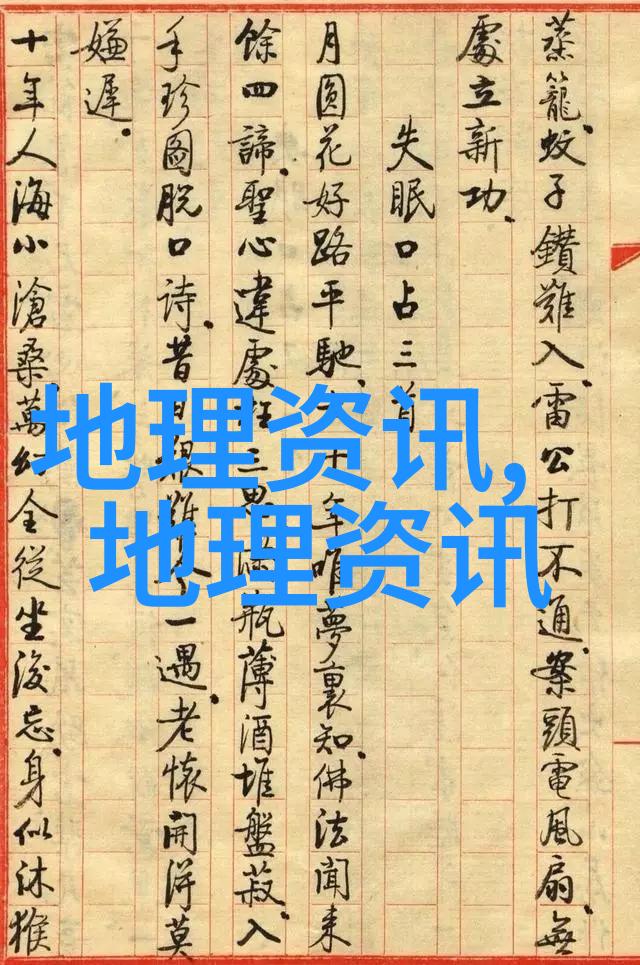 蒸籠、蚊子鑽難入、雷公打不通、案頭電風扇、無
處立新功、
失眠口占三首
月圓花好路平馳、十年唯夢裏知、佛法聞来
餘四諦、聖心違處三思瓶薄酒堆盤菽、入
手珍圖脱口詩、昔難今一遇、老懷開得莫
嫌遲、
十年人海小滄桑、萬幻全從坐後忘、身似沐猴
地理资讯,
地理资讯